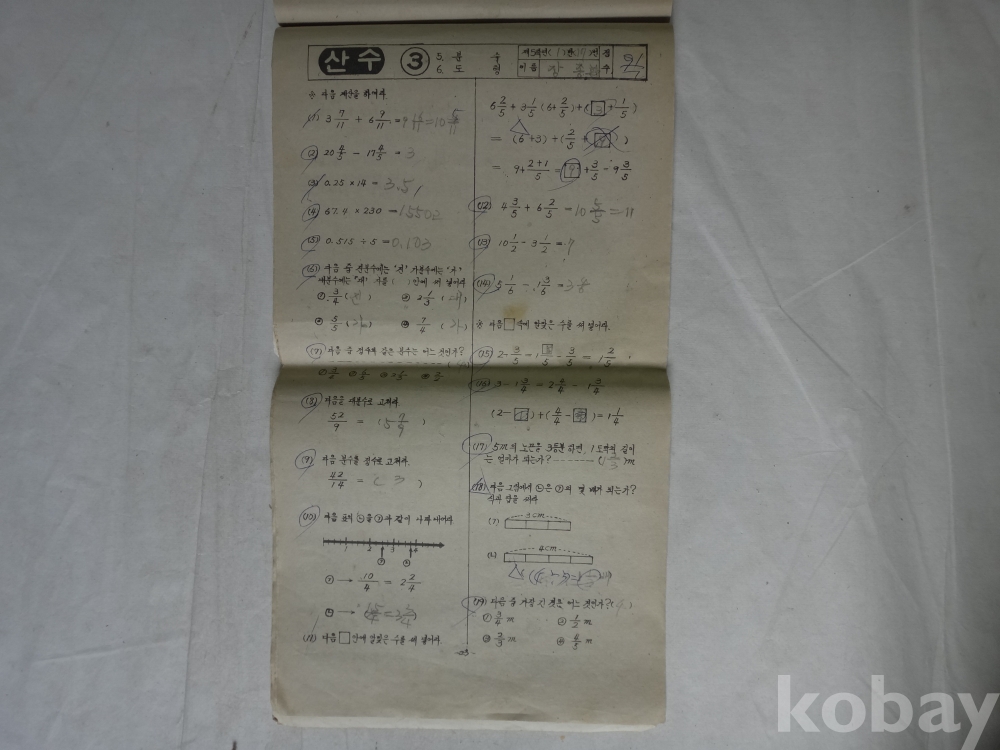 산수 ③ 5. 분 수
6. 도 형
제5학년( )반( )번 점
이름 수
※ 다음 계산을 하여라.
(1) 3 7/11 + 6 9/11 =
(2) 20 4/5 - 17 4/5 = 3
(3) 0.25 × 14 = 3.5
(4) 67.4 × 230 = 15502
(5) 0.515 ÷ 5 = 0.103
(6) 다음 중 진분수에는 '진' 가분수에는 '가'
대분수에는 '대' 자를 ( )안에 써 넣어라
① 3/4 (진) ② 2 1/3 (대)
③ 5/5 (가) ④ 7/4 (가)
(7) 다음 중 정수와 같은 분수는 어느 것인가?
(8) 다음을 대분수로 고쳐라.
52/9 = (5 7/9)
(9) 다음 분수를 정수로 고쳐라.
42/14 = ( 3 )
(10) 다음 표의 ㉡을 ㉠과 같이 나타내어라
1 2 3 4
㉠ → 10/4 = 2 2/4
㉡ →
(11) 다음 □안에 알맞은 수를 써 넣어라.
6 2/5 + 3 1/5 (6 + 2/5) + ( 3 + 1/5 )
= (6 + 3) + ( 2/5 + )
= 9 + 2+1/5 = 9 + 3/5 = 9 3/5
(12) 4 3/5 + 6 2/5 = 10 5/5 = 11
(13) 10 1/2 - 3 1/2 = 7
(14) 5 1/6 - 1 3/6 =
※ 다음 □속에 알맞은 수를 써 넣어라.
(15) 2 - 3/5 = 1 5/5 - 3/5 = 1 2/5
(16) 3 - 1 3/4 = 2 4/4 - 1 3/4
(2 - □) + (4/4 - □) = 1 1/4
(17) 5m의 노끈을 3등분 하면, 1도막의 길이
는 얼마가 되는가? ( )m
(18) 다음 그림에서 ㉡은 ㉠의 몇 배가 되는가?
식과 답을 써라
(ㄱ) 3cm
(ㄴ) 4cm
(19) 다음 중 가장 긴 것은 어느 것인가? (4)
① 3/4 m ② 1/2 m
③ 2/3 m ④ 4/5 m
kobay